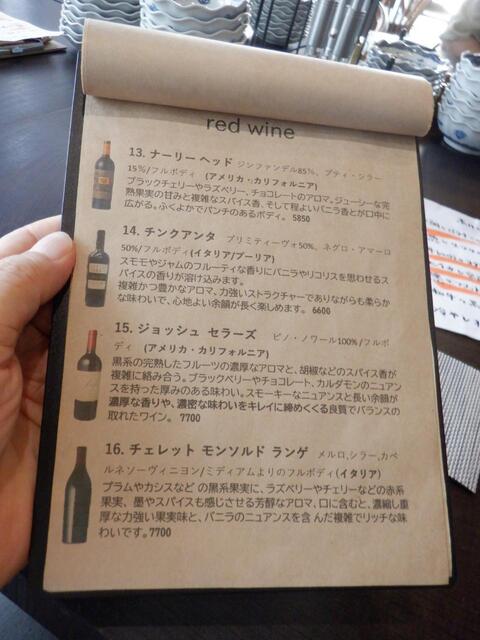 red wine
13. ナーリー ヘッド ジンファンデル85%、プティ・シラー
15%/フルボディ (アメリカ・カリフォルニア)
ブラックチェリーやラズベリー、チョコレートのアロマ。ジューシーな完
熟果実の甘みと複雑なスパイス香、そして程よいバニラ香とが口中に
広がる。ふくよかでパンチのあるボディ。 5850
14. チンクアンタ プリミティーヴォ50%、ネグロ・アマーロ
50%/フルボディ(イタリア/プーリア)
スモモやジャムのフルーティな香りにバニラやリコリスを思わせるス
パイスの香りが溶け込みます。
複雑かつ豊かなアロマ、力強いストラクチャーでありながらも柔らか
な味わいで、心地よい余韻が長く楽しめます。 6600
15. ジョッシュ セラーズ ピノ・ノワール100%/フルボ
ディ (アメリカ・カリフォルニア)
黒系の完熟したフルーツの濃厚なアロマと、胡椒などのスパイス香が
複雑に絡み合う。ブラックベリーやチョコレート、カルダモンのニュアン
スを持った厚みのある味わい。スモーキーなニュアンスと長い余韻が
濃厚な香りや、濃密な味わいをキレイに締めくくる良質でバランスの
取れたワイン。 7700
16. チェレット モンソルド ランゲ メルロ,シラー,カベ
ルネソーヴィニヨン/ミディアムよりのフルボディ(イタリア)
プラムやカシスなど の黒系果実に、ラズベリーやチェリーなどの赤系
果実、墨やスパイスも感じさせる芳醇なアロマ。口に含むと、濃縮し重
厚な力強い果実味と、バニラのニュアンスを含 んだ複雑でリッチな味
わいです。7700